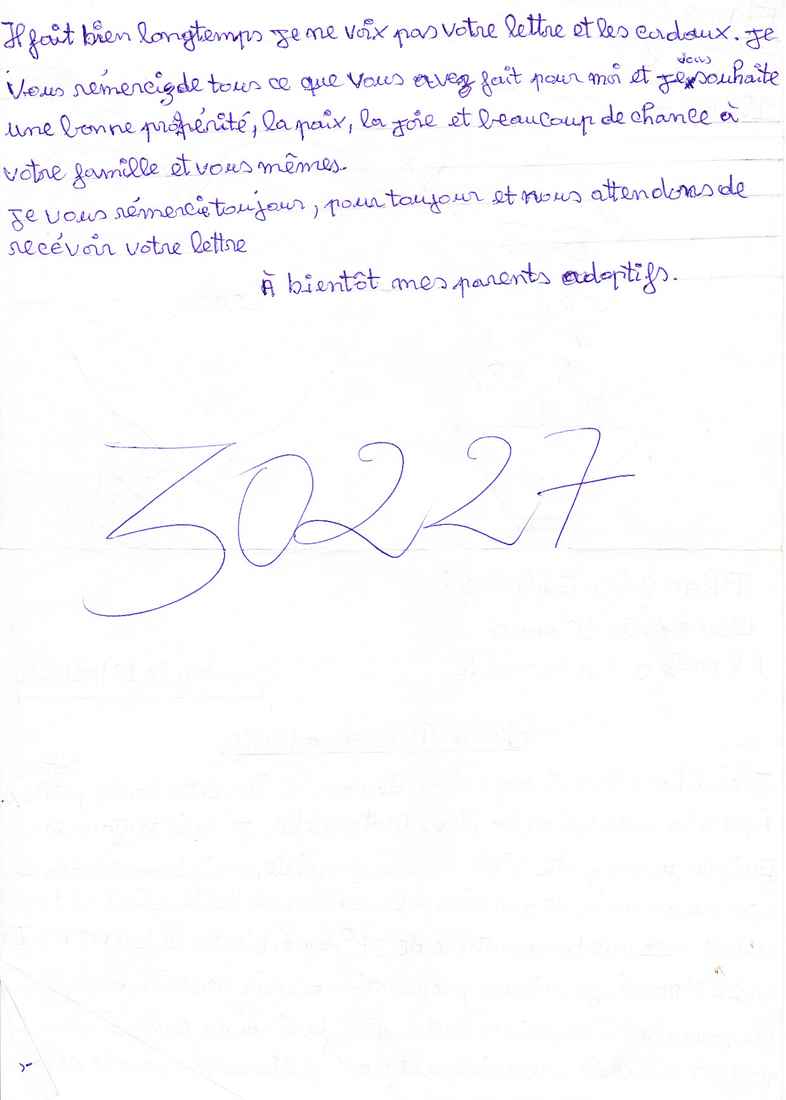 Il fait bien longtemps je ne voix pas votre lettre et les cadaux. Je
vous rémercie de tous ce que vous avez fait pour moi et je vous souhaite
une bonne prospérité, la paix, la joie et beaucoup de chance à
votre famille et vous mêmes.
Je vous rémercie toujour, pour toujour et nous attendons de
recévoir votre lettre
À bientôt mes parents adoptifs.
30227